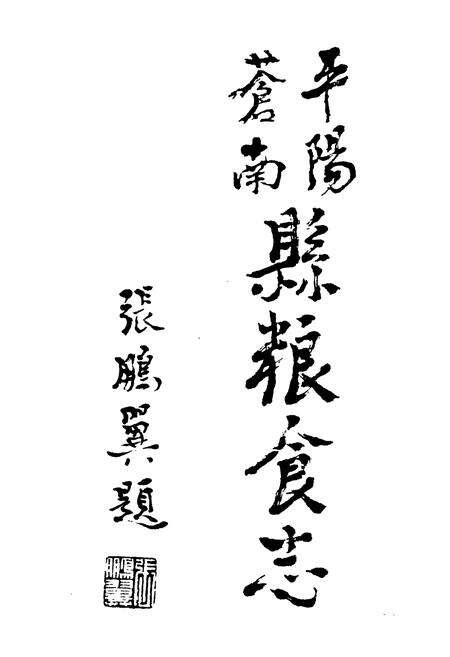 平陽
蒼南
縣粮食志
張鵬翼題
張鵬翼